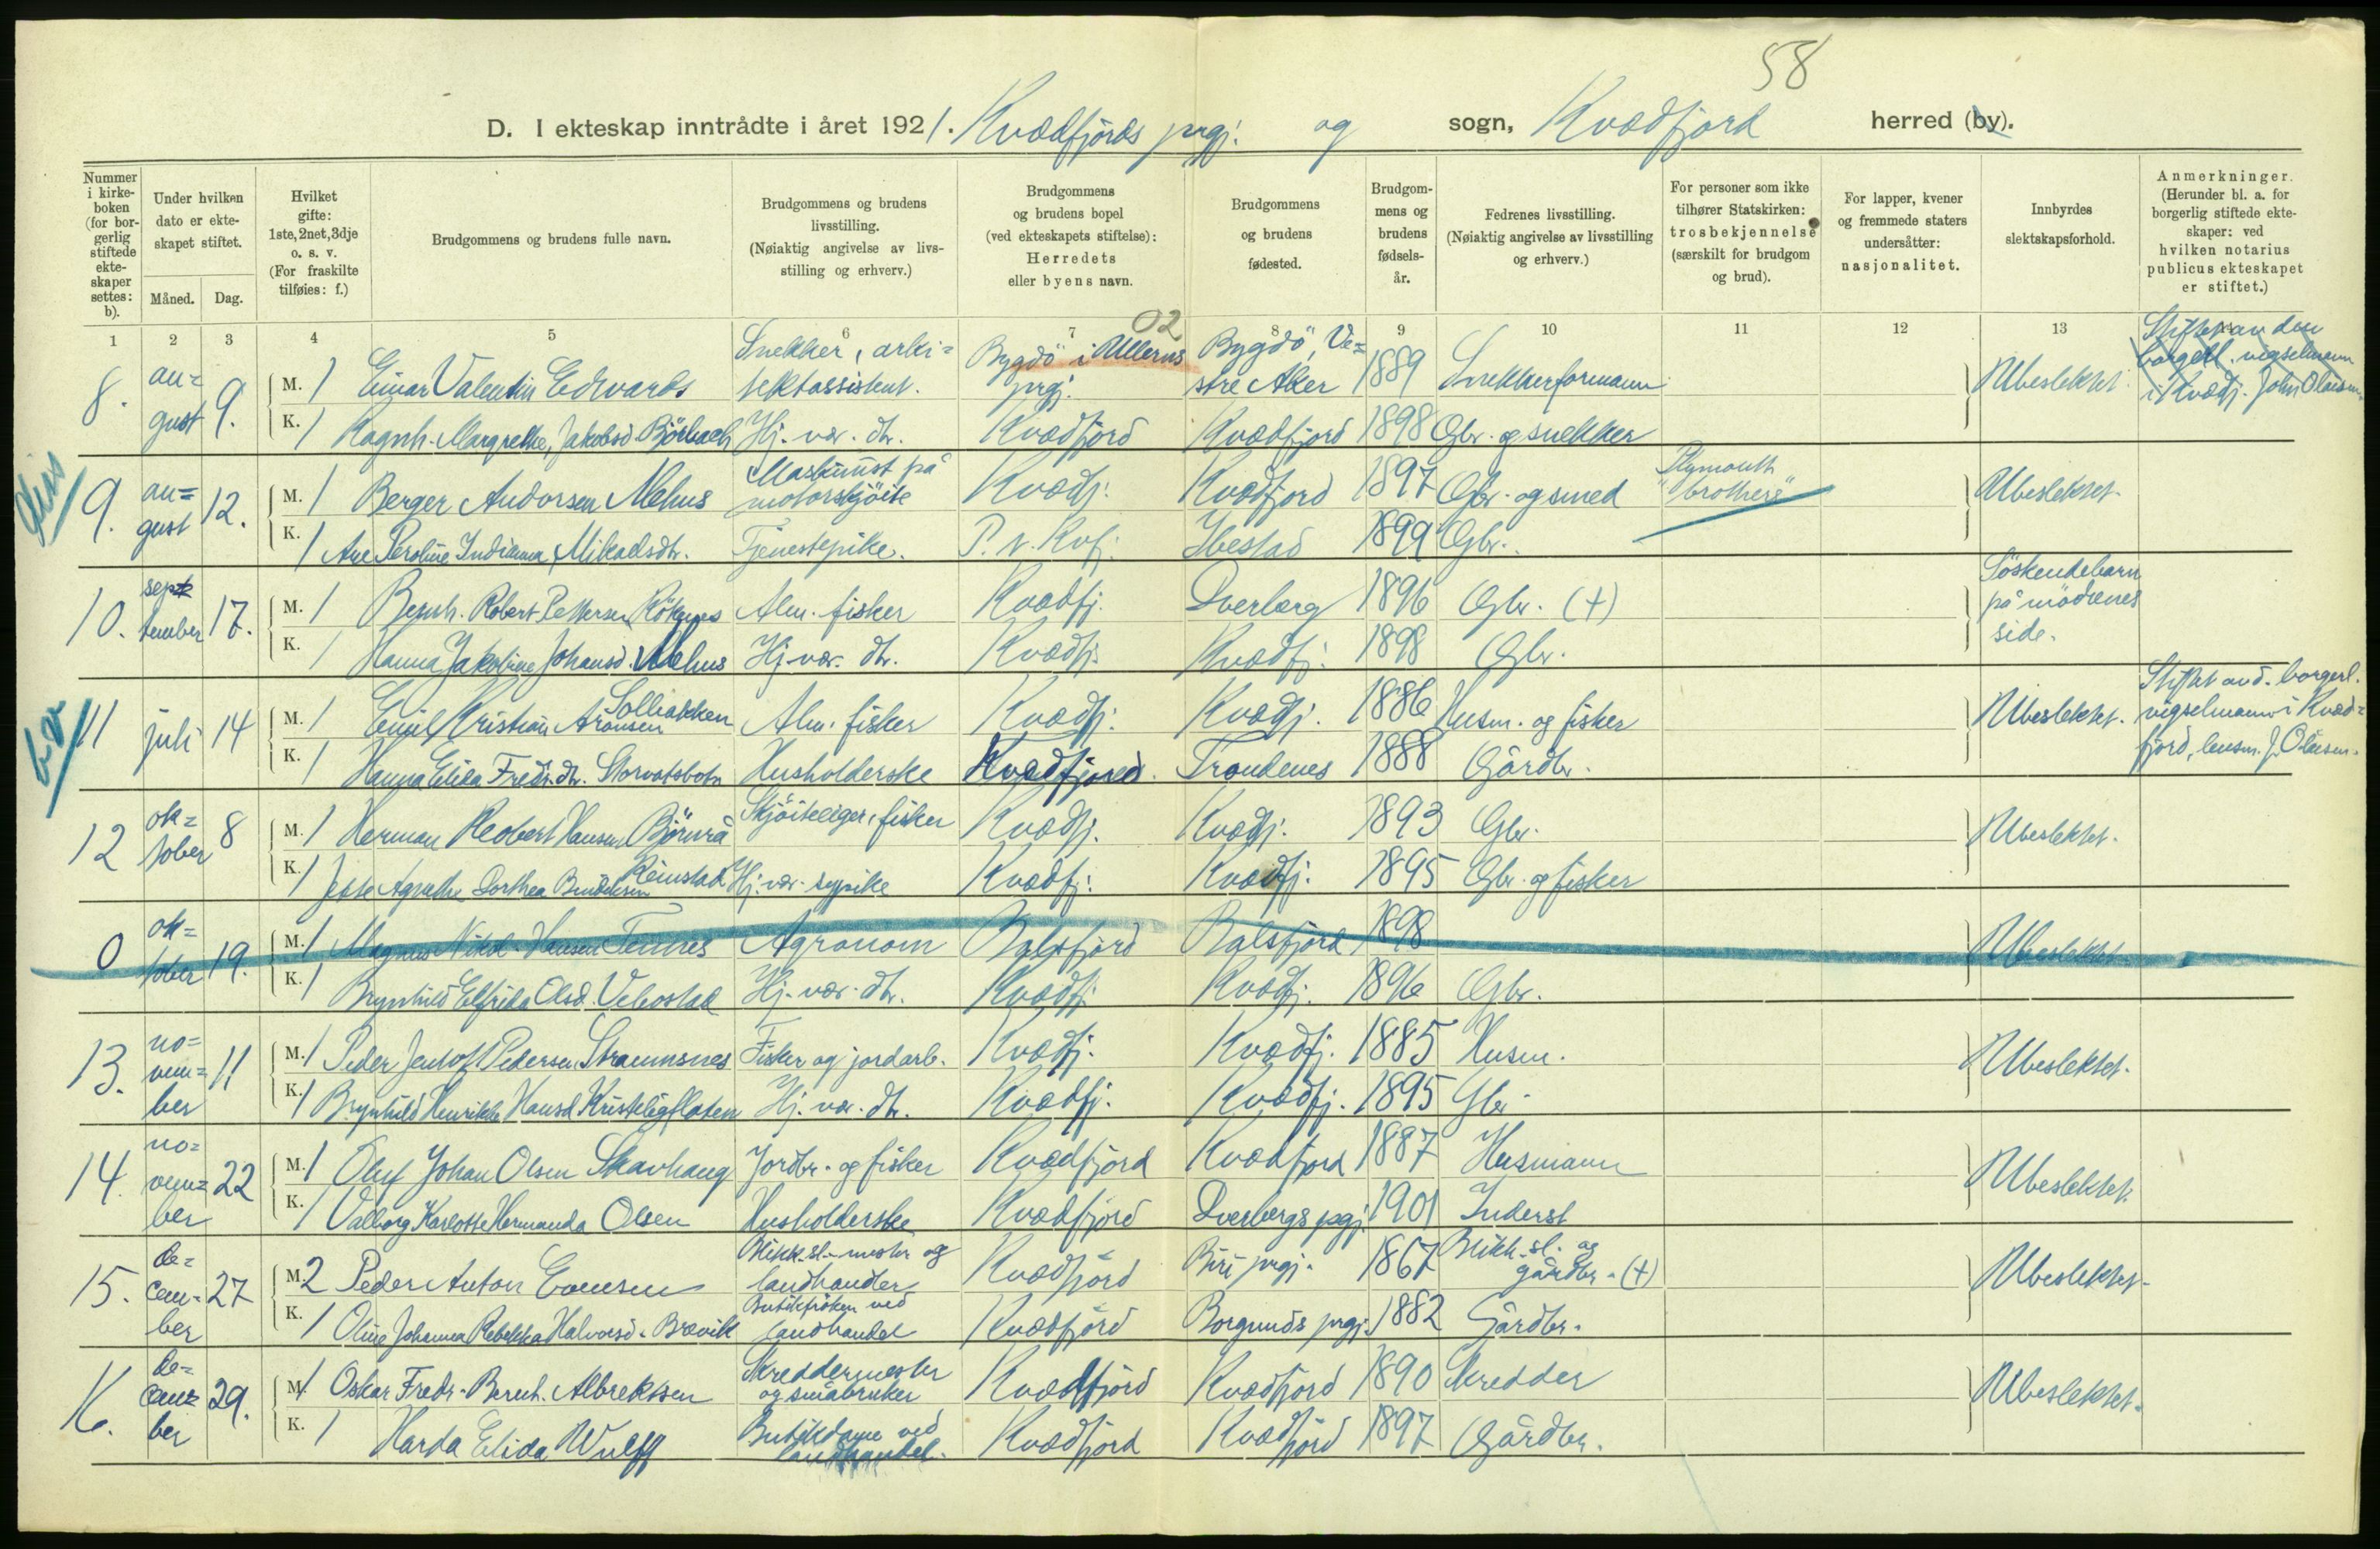 58
D. I ekteskap inntrådte i året 1921. Kvædfjords prgj. og sogn, Kvædfjord herred (by).
Nummer i kirkeboken (for borgerlig stiftede ekteskaper settes: b).
Under hvilken dato er ekteskapet stiftet.
Måned. Dag.
Hvilket gifte: 1ste, 2net, 3dje o. s. v. (For fraskilte tilføies: f.)
Brudgommens og brudens fulle navn.
Brudgommens og brudens livsstilling. (Nøiaktig angivelse av livsstilling og erhverv.)
Brudgommens og brudens bopel (ved ekteskapets stiftelse): Herredets eller byens navn.
Brudgommens og brudens fødested.
Brudgommens og brudens fødselsår.
Fedrenes livsstilling. (Nøiaktig angivelse av livsstilling og erhverv.)
For personer som ikke tilhører Statskirken: trosbekjennelse (særskilt for brudgom og brud).
For lapper, kvener og fremmede staters undersåtter: nasjonalitet.
Innbyrdes slektskapsforhold.
Anmerkninger. (Herunder bl. a. for borgerlig stiftede ekteskaper: ved hvilken notarius publicus ekteskapet er stiftet.)
1 2 3 4 5 6 7 8 9 10 11 12 13
02
8. august 9. M. 1 Einar Valentin Edwards Snekker, arkitektassistent. Bygdö i Ullerns prgj. Bygdö, Vestre Aker 1889 Snekkerformann Ubeslektet. Stiftet av den borgerl. vigselmann i Kvædfj. John Olaisen
K. 1 Ragnh. Margrethe, Jakobsd. Hj. vær. dtr. Kvædfjord Kvædfjord 1898 Gbr. og snekker
9. august 12. M. 1 Berger Andorsen Mehus Maskinist på motorskjöite Kvædfj. Kvædfjord 1897 Gbr. og smed Plymouth "brothers" Ubeslektet.
K. 1 Ane Peroline Indianna Mikaelsdtr. Tjenestepike. P. v. Kvfj. Ibestad 1899 Gbr.
10. september 17. M. 1 Bernh. Robert Pettersen Alm. fisker Kvædfj. Dverberg 1896 Gbr. (+) Söskendebarn på mödrenes side.
K. 1 Hanna Jakobine Johansd. Mehus Hj. vær. dtr. Kvædfj. Kvædfj. 1898 Gbr.
bor
11 juli 14 M. 1 Emil Kristian Aronsen Solbakken Alm. fisker Kvædfj. Kvædfj. 1886 Husm. og fisker Ubeslektet. Stiftet av d. borgerl. vigselmann i Kvædfjord, lensm. J. Olaisen.
K. 1 Hanna Elida Fredr.dtr. Storvatsbotn Husholderske Kvædfjord. Trondenes 1888 Gårdbr.
12 oktober 8 M. 1 Herman Hansen Björnrå Skjöiteeiger, fisker Kvædfj. Kvædfj. 1893 Gbr. Ubeslektet.
K. 1 Jette Agnethe Dorthea Reinstad Hj. vær. sypike Kvædfj. Kvædfj. 1895 Gbr. og fisker
0 oktober 19. M. 1 Magnus Nikol. Hansen Tennes Agronom Balsfjord Balsfjord 1898 Ubeslektet.
K. 1 Brynhild Elfrida Olsd. Vebostad Hj. vær. dtr. Kvædfj. Kvædfj. 1896 Gbr.
13. november 11 M. 1 Peder Jentoft Pedersen Straumsnes Fisker og jordarb. Kvædfj. Kvædfj. 1885 Husm. Ubeslektet.
K. 1 Brynhild Henrikke Hansd. Hj. vær. dtr. Kvædfj. Kvædfj. 1895 Gbr.
14. november 22 M. 1 Oluf Johan Olsen Skavhaug Jordbr. og fisker Kvædfjord Kvædfjord 1887 Husmann Ubeslektet.
K. 1 Valborg Karlotte Hermanda Olsen Husholderske Kvædfjord Dverbergs pgj. 1901 Inderst
15. december 27 M. 2 Peder Anton Evensen Blikk.sl.mester og landhandler Kvædfjord Biri prgj. 1867 Blikk.sl. og gårdbr. (+) Ubeslektet.
K. 1 Oline Johanna Rebekka Halvorsd. Brevik Butikfröken ved landhandel Kvædfjord Borgunds prgj. 1882 Gårdbr.
16. december 29. M. 1 Oskar Fredr. Bernh. Albrektsen Skreddermester og småbruker Kvædfjord Kvædfjord 1890 Skredder Ubeslektet.
K. 1 Harda Elida Wulff Butikdame ved landhandel. Kvædfjord Kvædfjord 1897 Gårdbr.